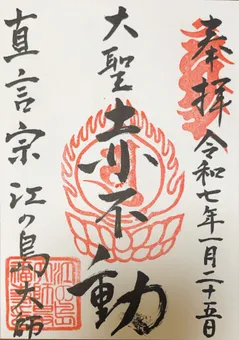 奉拝 令和七年一月二十五日
大聖 赤不動
真言宗 江の島大師